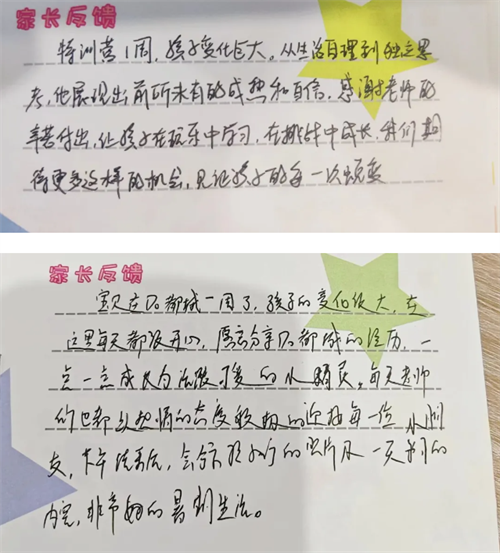 家长反馈
特训营1周，孩子变化巨大，从生活自理到独立思
考，他展现出前所未有的成熟和自信，感谢老师的
辛苦付出，让孩子在玩乐中学习，在挑战中成长，我们期
待更多这样的机会，见证孩子的每一次蜕变
家长反馈
宝贝在 都城一周了，孩子的变化很大，在
这里每天都很开心，愿意分享 都城的经历，一
点一点成长为 可爱的小精灵，每天老师
们也都以热情的态度积极的迎接每一位小朋
友，下午 后，会分享孩子们的照片及一天 的
内容，非常 的暑 生活。